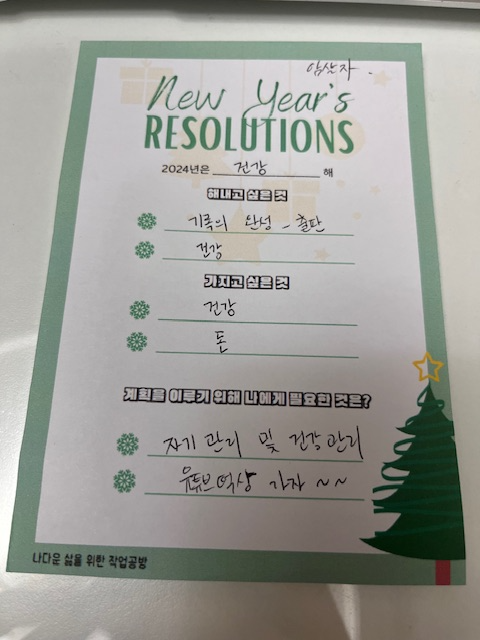 New Year's
RESOLUTIONS
2024년은 건강 해
해내고 싶은 것
기록의 완성 - 출판
건강
가지고 싶은 것
건강
돈
계획을 이루기 위해 나에게 필요한 것은?
자기 관리 및 건강관리
유튜브 가자 ~~
나다운 삶을 위한 작업공방